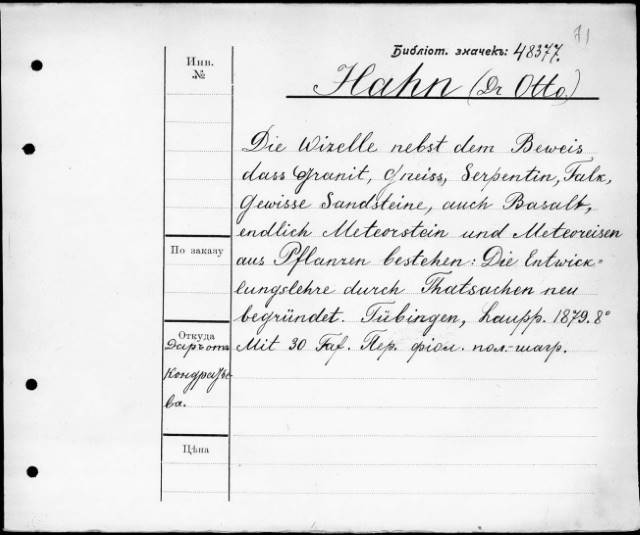 71
Библіот. значекъ: 48377.
Инв.
№
Hahn (Dr Otto)
Die Wizelle nebst dem Beweis
dass Granit, Gneiss, Serpentin, Talk,
Gewisse Sandsteine, auch Basalt,
endlich Meteorstein und Meteoreisen
По заказу
aus Pflanzen bestehen: Die Entwick=
lungslehre durch Thatsachen neu
begründet. Tübingen, Laupp. 1879. 8°
Откуда
Даръ отъ
Кондратье
ва.
Mit 30 Taf. Пер. фіол. пол.-шагр.
Цѣна